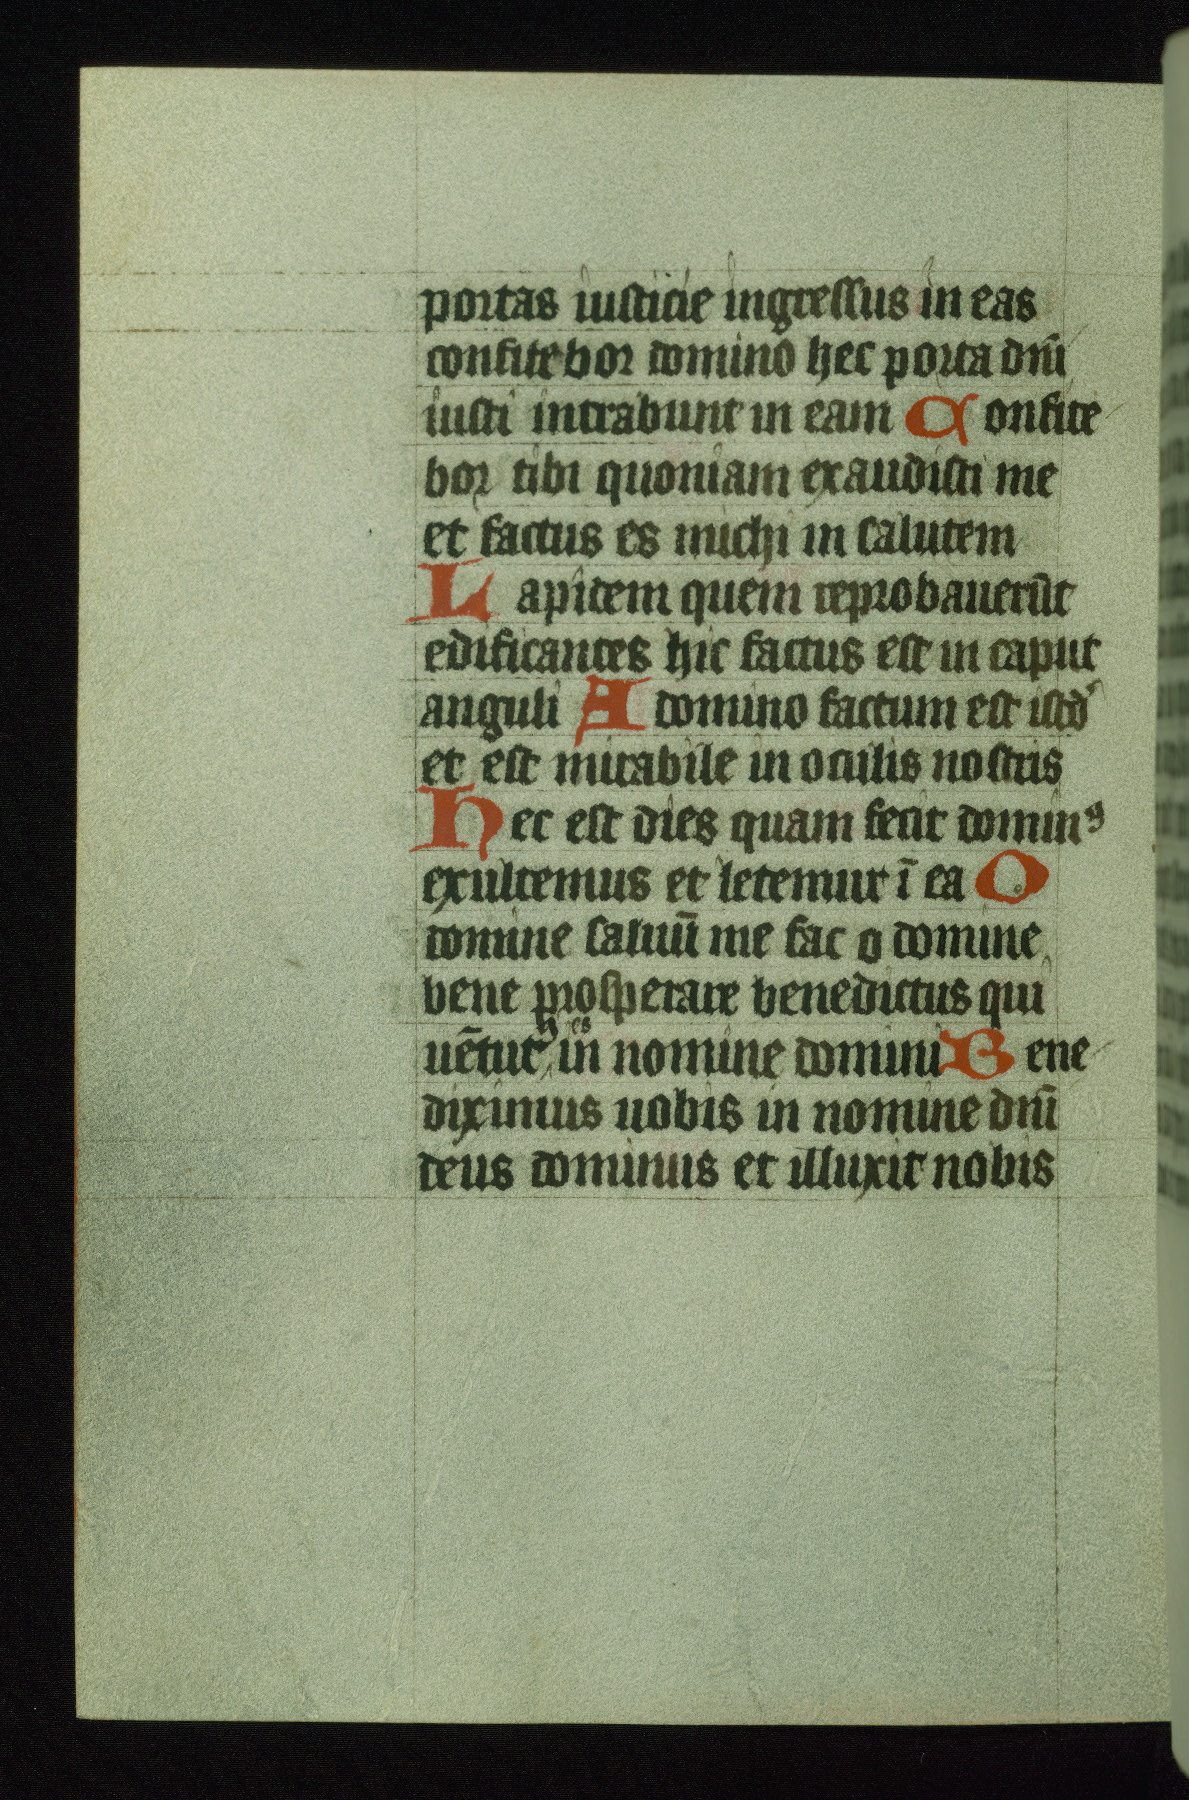 portas iusticie ingressus in eas
confitebor domino hec porta dnī
iusti intrabunt in eam Confite
bor tibi quoniam exaudisti me
et factus es michi in salutem
Lapidem quem reprobauerūt
edificantes hic factus est in caput
anguli A domino factum est istd
et est mirabile in oculis nostris
Hec est dies quam fecit dominꝰ
exultemus et letemur ī ea O
domine saluū me fac o domine
bene prosperare benedictus qui
uētur in nomine domini Bene
diximus uobis in nomine dnī
deus dominus et illuxit nobis